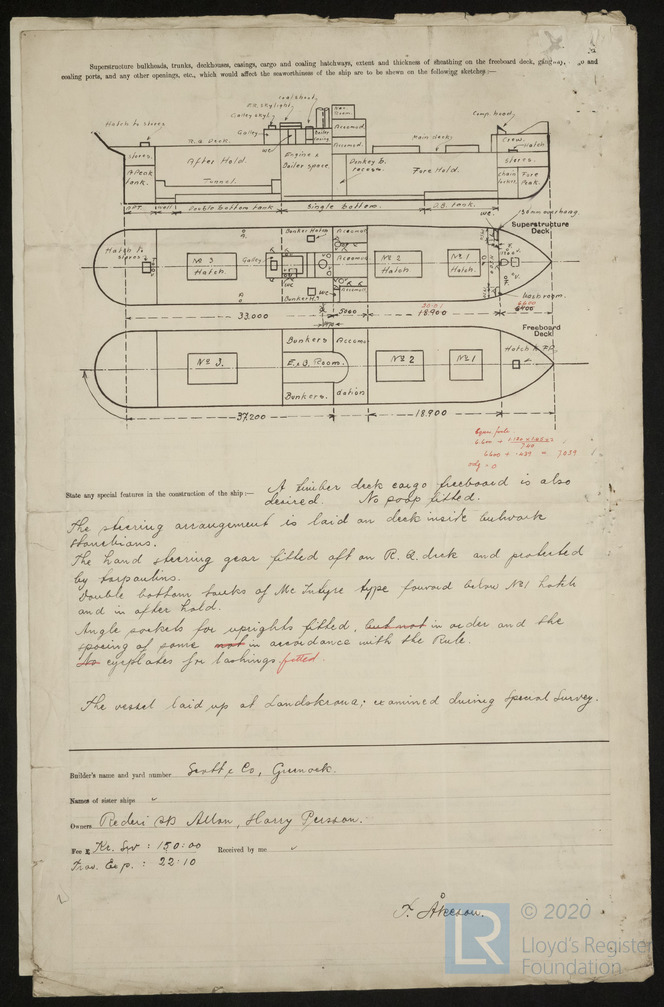 Superstructure bulkheads, trunks, deckhouses, casings, cargo and coaling hatchways, extent and thickness of sheathing on the freeboard deck, gangway, and
coaling ports, and any other openings, etc., which would affect the seaworthiness of the ship are to be shewn on the following sketches:—
Coal shoot
E.R. skylight
Galley skyl.
Hatch to stores
R.Q. Deck.
Galley
WC
Boiler casing
Accomod.
Main deck
Comp. head
Crew.
Hatch
stores.
A Peak tank.
After Hold.
Engine & Boiler space.
Accomod.
Donkey b. recess.
Fore Hold.
stores.
Chain locker.
Fore Peak.
Tunnel.
A.P.T.
Well
Double bottom tank
Single bottom.
D.B. tank.
WC.
Superstructure
Deck.
Hatch to stores
No 3 Hatch
Galley
Bunker Hatch
Accomod
Accomod
Accomod.
Bunker H.
WC
No 2 Hatch
No 1 Hatch.
33.000
5000
18.900
6600
6400
Freeboard
Deck
No 3.
Bunkers
E. & B. Room.
Bunkers.
Accomo
dation
No 2
No 1
Hatch to F.P.
37.200
18.900
6.600
7.039
State any special features in the construction of the ship:— A timber deck cargo freeboard is also
desired No poop fitted.
The steering arrangement is laid on deck inside bulwark
stanchions.
The hand steering gear fitted aft on R. Q. deck and protected
by tarpaulins.
Double bottom tanks of Mc Intyre type forward below No1 hatch
and in after hold.
Angle sockets for uprights fitted, but not in order and the
spacing of some not in accordance with the Rule.
No eyeplates for lashings fitted.
The vessel laid up at Landskrona; examined during Special Survey.
Builder's name and yard number Scott & Co, Greenock.
Names of sister ships
Owners Rederi AB Allan, Harry Persson.
Fee £ Kr. Sw : 150:00 Received by me
Trav. Exp. : 22:10
F. Åkeson.
© 2020
LR
Lloyd's Register
Foundation